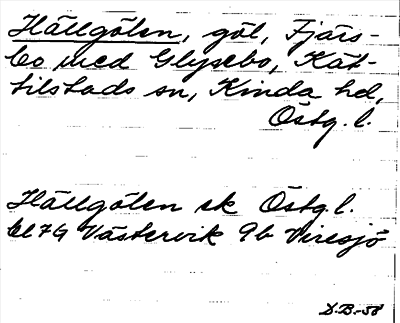 Hällgölen, göl, Fjärs-
bo med Glysebo, Kät-
tilstads sn, Kinda hd,
Östg. l.
Hällgölen sk Östg. l.
bl 7G Västervik 9b Viresjö
D.B.-58